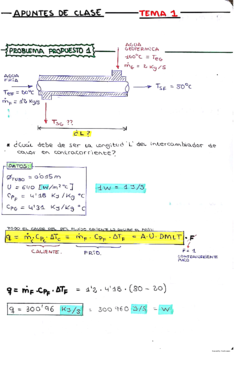 APUNTES DE CLASE TEMA 1
PROBLEMA PROPUESTO 1
AGUA
GEOTÉRMICA
160ºC = TEG
ṁG = 2 Kg/s
AGUA
FRÍA
TEF = 20ºC
ṁF = 1'2 Kg/s
TSF = 80ºC
TSG ??
¿L?
* ¿Cuál debe de ser la longitud 'L' del intercambiador de
calor en contracorriente?
DATOS:
ØTUBO = 0'015 m
U = 640 [W/m²ºC]
CPF = 4'18 KJ/Kg ºC
CPG = 4'31 KJ/Kg ºC
1W = 1 J/s
TODO EL CALOR DEL FLUJO CALIENTE LO GANA EL FRÍO
q = ṁC·CPC·ΔTC = ṁF·CPF·ΔTF = A·U·DMLT·F
CALIENTE. FRÍO.
F = 1
CONTRACORRIENTE
PURO
q = ṁF·CPF·ΔTF = 1'2·4'18·(80-20)
q = 300'96 KJ/s = 300 960 J/s = W